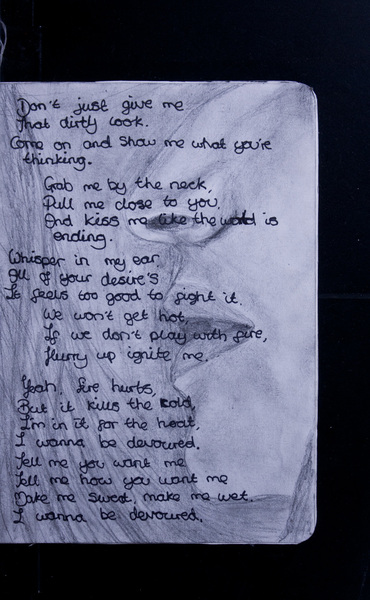 Don't just give me
that dirty look.
Come on and show me what you're
thinking.
Grab me by the neck,
Pull me close to you,
And kiss me like the world is
ending.
Whisper in my ear,
All of your desire's
It feels too good to fight it.
We won't get hot,
If we don't play with fire,
Hurry up ignite me.
Yeah, fire hurts,
But it kills the cold,
I'm in it for the heat,
I wanna be devoured.
Tell me you want me
Tell me how you want me
Make me sweat, make me wet.
I wanna be devoured.